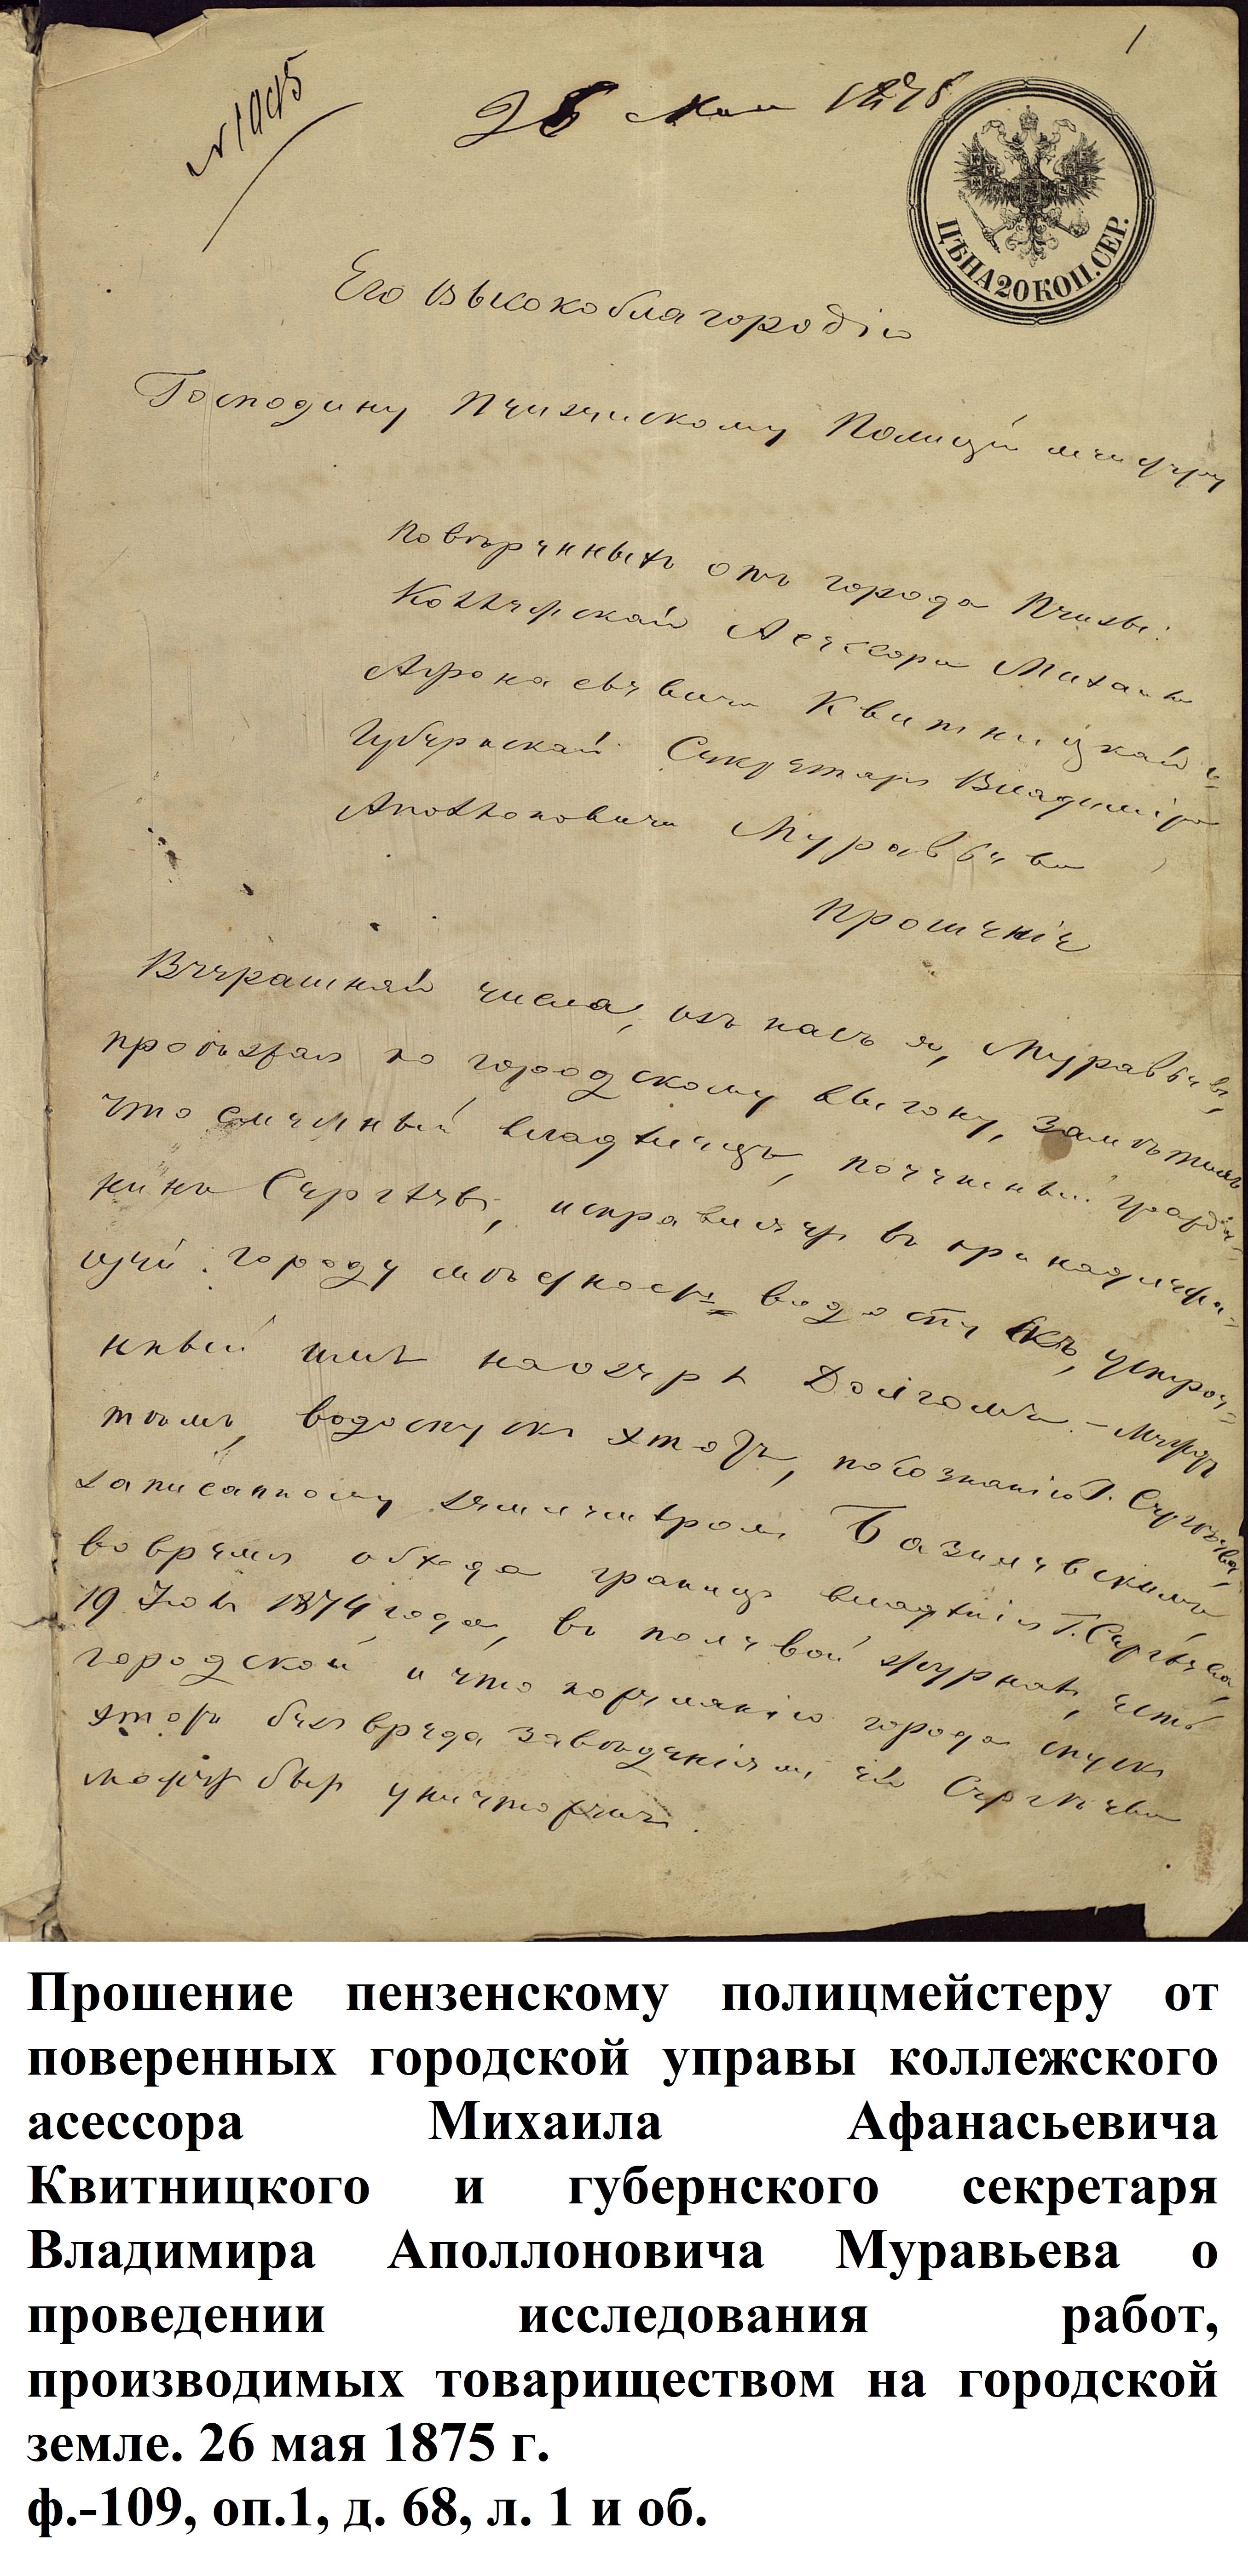 1
№ 1045
26 Мая 1875
ЦѢНА 20 КОП. СЕР.
Его Высокоблагородію
Господину Пензенскому Полицій мейстеру
Повѣренныхъ отъ города Пензы:
Коллежскай Асессора Михаила
Афонасьевича Квитницкай и
Губернскай Секретаря Владиміра
Аполлоновича Муравьева
Прошеніе
Вчерашняй числа, изъ насъ я, Муравьевъ,
проѣзжая по городскому выгону, замѣтилъ
что смежный владѣлецъ, почетный гражда-
нинъ Сергѣевъ, исправляетъ въ принадлежа-
щей городу мѣстности водоспускъ, устроен-
ный имъ на озерѣ
водоспускъ этотъ, по сознанію Г. Сергѣева,
записанному землемѣромъ Базилевскимъ
во время обхода границъ владѣнія Г. Сергѣева
19 Іюля 1874 года, въ полевой журналъ, есть
городской и что по желанію города спускъ
этотъ безъ вреда заведеніямъ его Сергѣева
можетъ быть уничтоженъ.
Прошение пензенскому полицмейстеру от
поверенных городской управы коллежского
асессора Михаила Афанасьевича
Квитницкого и губернского секретаря
Владимира Аполлоновича Муравьева о
проведении исследования работ,
производимых товариществом на городской
земле. 26 мая 1875 г.
ф.-109, оп.1, д. 68, л. 1 и об.